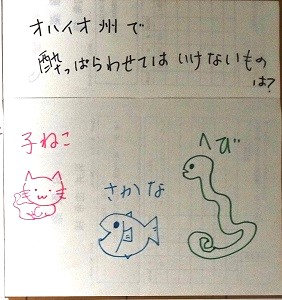 オハイオ州で
酔っぱらわせてはいけないもの
は?
子ねこ
さかな
へび